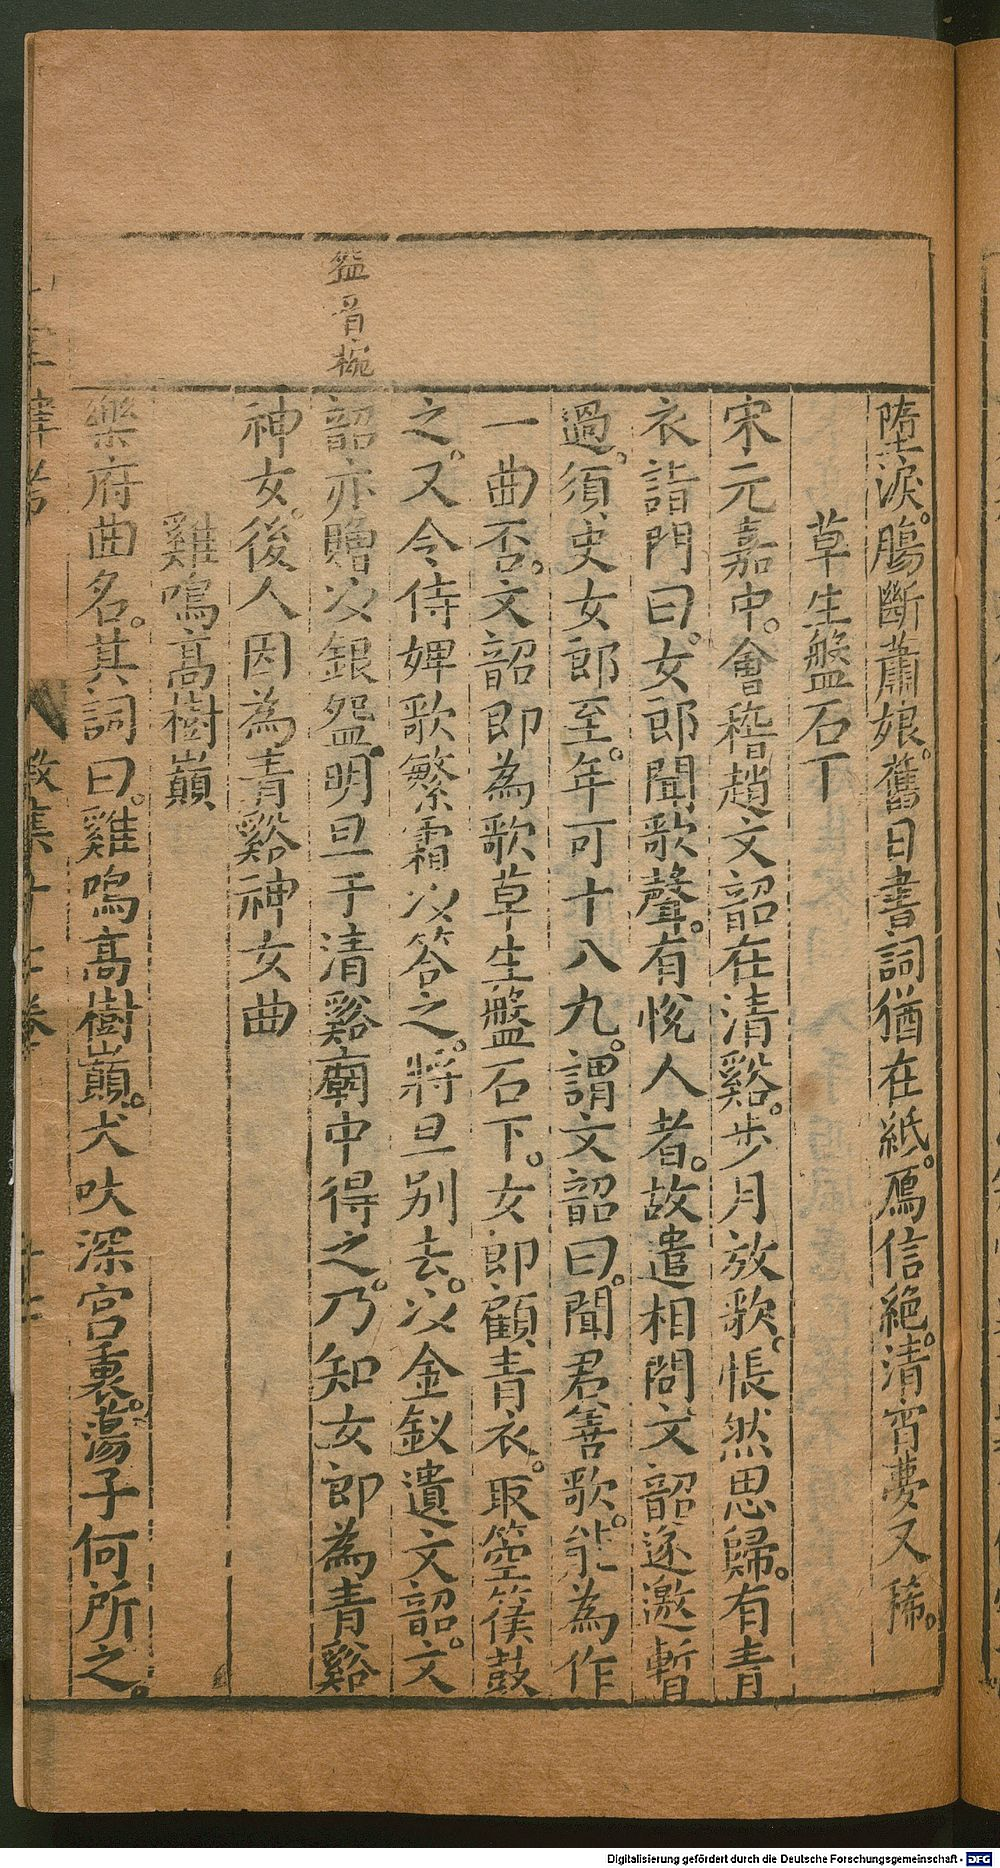 墮淚。腸斷蕭娘。舊日書詞猶在紙。鴈信絕。清宵夢又稀。
草生盤石下
宋元嘉中。會稽趙文韶在清谿。步月放歌。悵然思歸。有青
衣詣門曰。女郎聞歌聲。有悅人者。故遣相問文韶遂邀暫
過。須㬰女郎至。年可十八九。謂文韶曰。聞君善歌。能為作
一曲否。文韶即為歌草生盤石下。女郎顧青衣。取箜篌鼓
之。又令侍婢歌繁霜以答之。將旦别去。以金釵遺文韶。文
韶亦贈以銀盌。明旦于清谿廟中得之。乃知女郎為青谿
神女。後人因為青谿神女曲
盌音椀
雞鳴高樹巔
樂府曲名。其詞曰。雞鳴高樹巔。犬吠深宫裏。蕩子何所之。
Digitalisierung gefördert durch die Deutsche Forschungsgemeinschaft - DFG